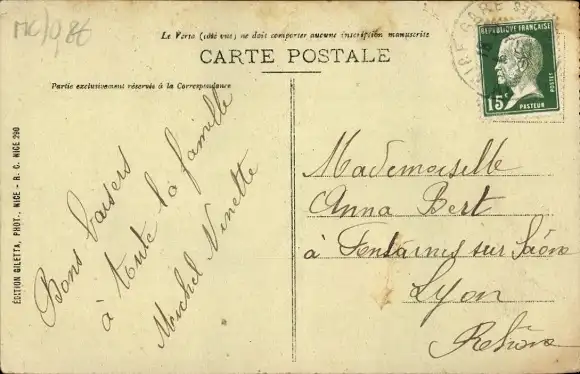 MC/086
Le Verso (côté vue) ne doit comporter aucune inscription manuscrite
CARTE POSTALE
Partie exclusivement réservée à la Correspondance
Bons baisers
à toute la famille
Michel Ninette
ÉDITION GILETTA, PHOT., NICE - R. C. NICE 290
GARE
REPUBLIQUE FRANÇAISE
POSTES
15c
PASTEUR
Mademoiselle
Anna Bert
à Fontaines sur Saône
Lyon
Rhône